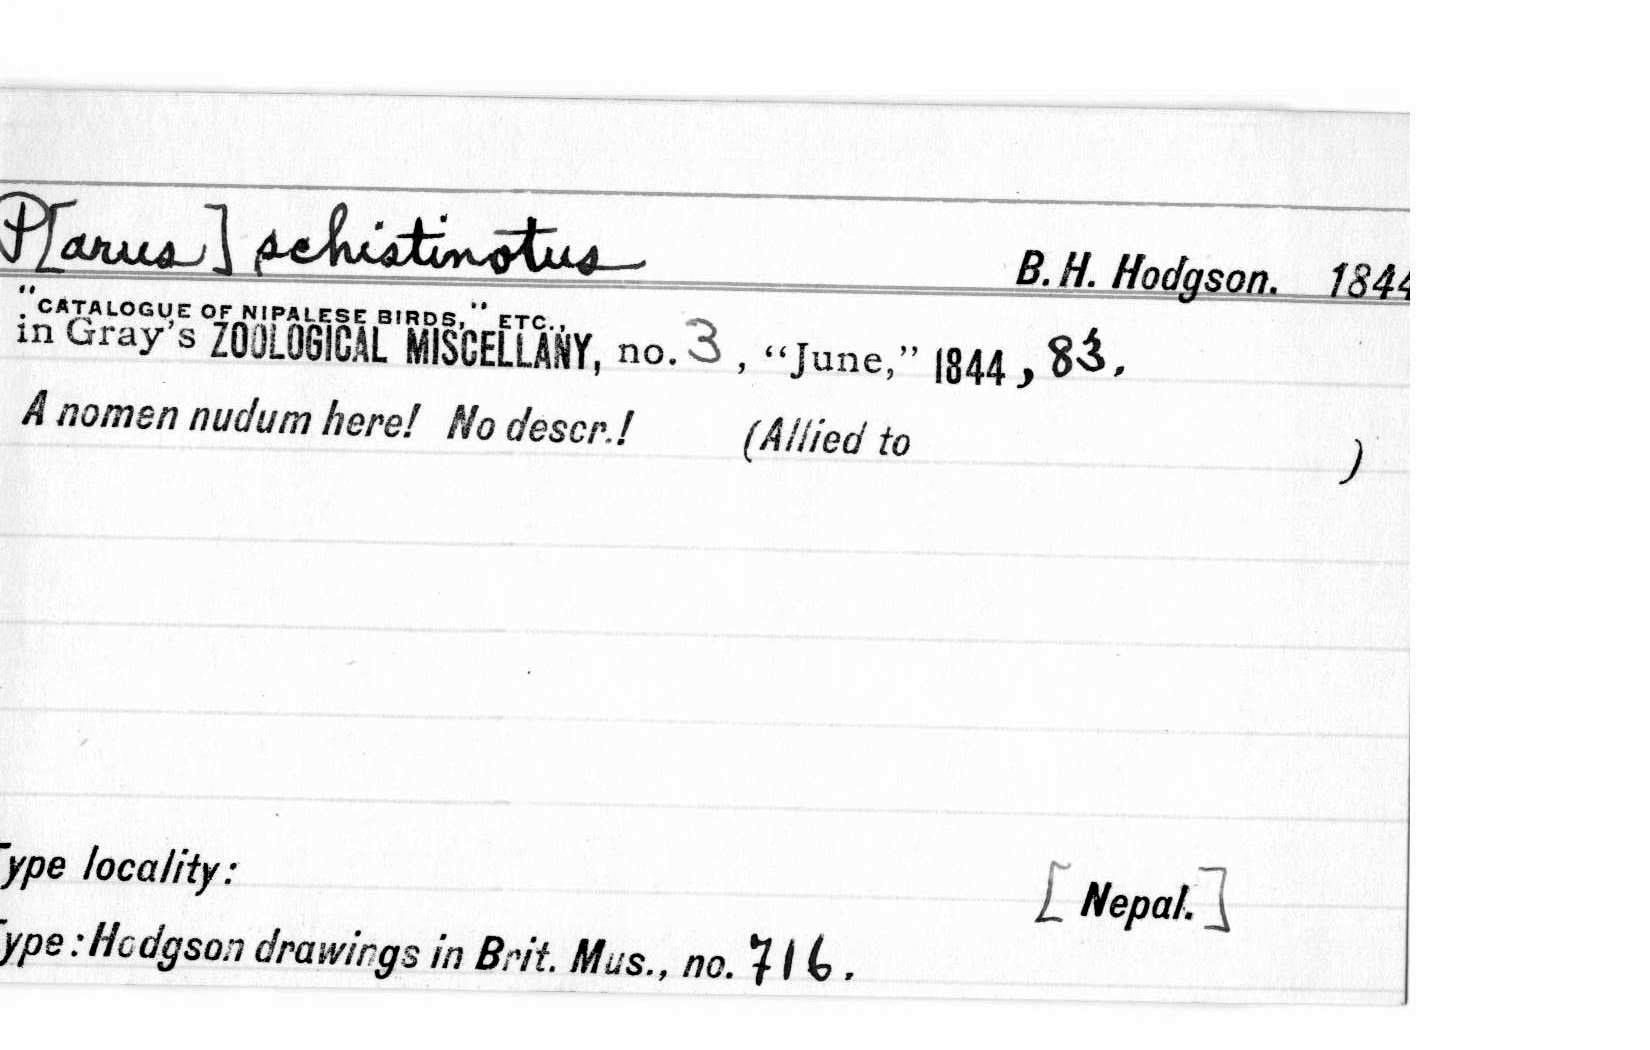 P[arus] schistinotus B. H. Hodgson. 1844
"CATALOGUE OF NIPALESE BIRDS," ETC.,
in Gray's ZOOLOGICAL MISCELLANY, no. 3, "June," 1844, 83.
A nomen nudum here! No descr.! (Allied to )
Type locality: [Nepal.]
Type: Hodgson drawings in Brit. Mus., no. 716.